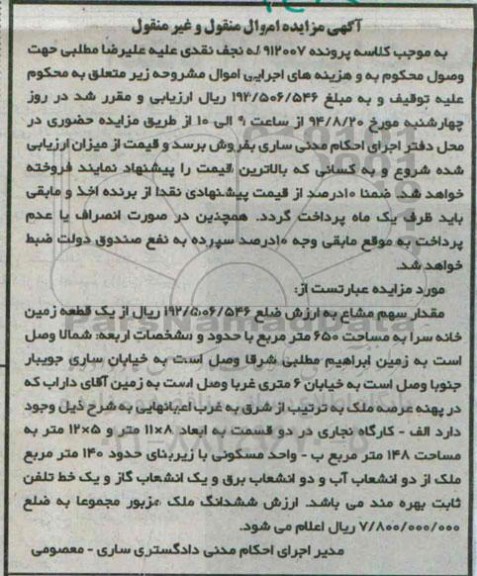 آگهی مزایده اموال منقول و غیر منقول
به موجب کلاسه پرونده 912007 له نجف نقدی علیه علیرضا مطلبی جهت
وصول محکوم به و هزینه های اجرایی اموال مشروحه زیر متعلق به محکوم
علیه توقیف و به مبلغ 192/506/546 ریال ارزیابی و مقرر شد در روز
چهارشنبه مورخ 94/8/20 از ساعت 9 الی 10 از طریق مزایده حضوری در
محل دفتر اجرای احکام مدنی ساری بفروش برسد و قیمت از میزان ارزیابی
شده شروع و به کسانی که بالاترین قیمت را پیشنهاد نمایند فروخته
خواهد شد. ضمنا 10درصد از قیمت پیشنهادی نقدا از برنده اخذ و مابقی
باید ظرف یک ماه پرداخت گردد. همچنین در صورت انصراف یا عدم
پرداخت به موقع مابقی وجه 10درصد سپرده به نفع صندوق دولت ضبط
خواهد شد.
مورد مزایده عبارتست از:
مقدار سهم مشاع به ارزش ضلع 192/506/546 ریال از یک قطعه زمین
خانه سرا به مساحت 650 متر مربع با حدود و مشخصات اربعه: شمالا وصل
است به زمین ابراهیم مطلبی شرقا وصل است به خیابان ساری جویبار
جنوبا وصل است به خیابان 6 متری غربا وصل است به زمین آقای داراب که
در پهنه عرصه ملک به ترتیب از شرق به غرب اعیانهایی به شرح ذیل وجود
دارد الف - کارگاه نجاری در دو قسمت به ابعاد 8×11 متر و 5×12 متر به
مساحت 148 متر مربع ب - واحد مسکونی با زیربنای حدود 140 متر مربع
ملک از دو انشعاب آب و دو انشعاب برق و یک انشعاب گاز و یک خط تلفن
ثابت بهره مند می باشد. ارزش ششدانگ ملک مزبور مجموعا به ضلع
7/800/000/000 ریال اعلام می شود.
مدیر اجرای احکام مدنی دادگستری ساری - معصومی
ParsNamadData